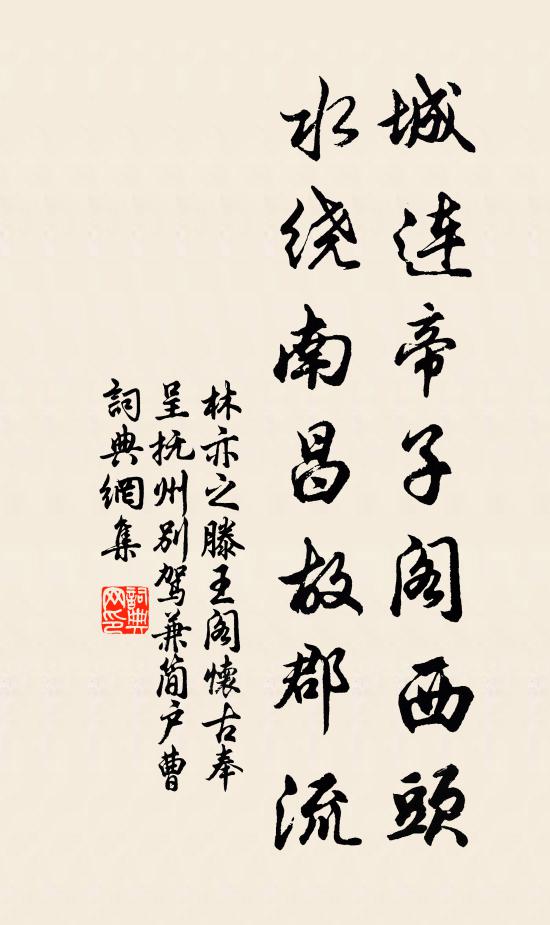 城连帝子阁西頭
水绕南昌故郡流
林亦之滕王阁懷古奉
呈抚州别驾兼简户曹
詞典網集
詞典网印